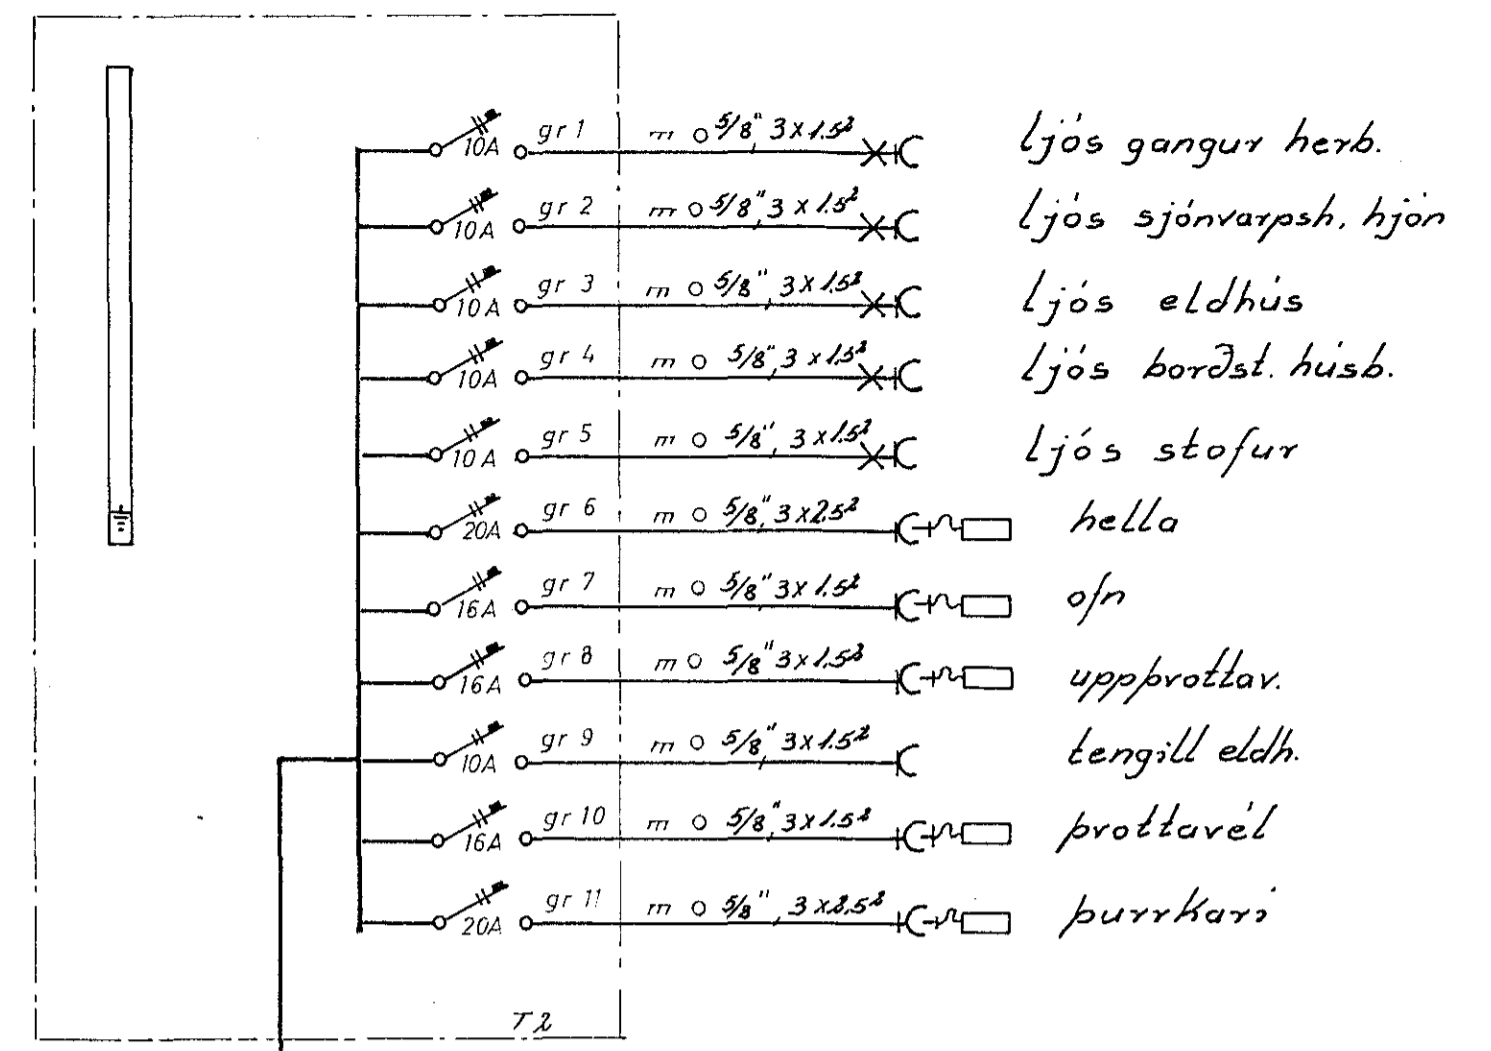 10A gr 1 m o 5/8" 3x1.5² ljós gangur herb.
10A gr 2 m o 5/8", 3 x 1.5² ljós sjónvarpsh. hjón
10A gr 3 m o 5/8", 3x1.5² ljós eldhús
10A gr 4 m o 5/8", 3 x 1.5² ljós borðst. húsb.
10A gr 5 m o 5/8", 3x1.5² ljós stofur
20A gr 6 m o 5/8", 3x2.5² hella
16A gr 7 m o 5/8", 3x1.5² ofn
16A gr 8 m o 5/8" 3x1.5² uppþvottav.
10A gr 9 m o 5/8", 3x1.5² tengill eldh.
16A gr 10 m o 5/8", 3x1.5² þvottavél
20A gr 11 m o 5/8", 3x2.5² þurrkari
T2